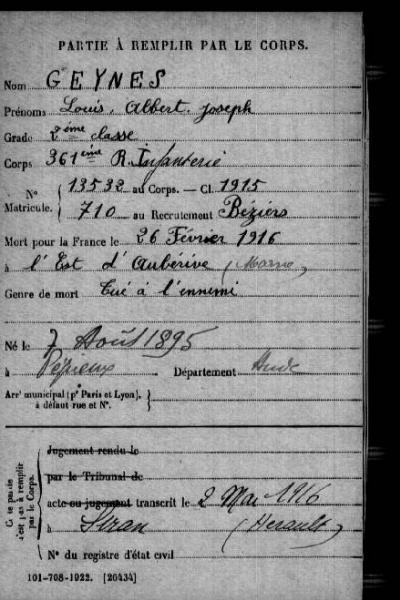 PARTIE À REMPLIR PAR LE CORPS.
Nom GEYNES
Prénoms Louis, Albert, Joseph
Grade 2ème classe
Corps 361ème R. Infanterie
N° Matricule. 13532 au Corps. — Cl. 1915
710 au Recrutement Béziers
Mort pour la France le 26 Février 1916
à l'Est d'Aubérive (Marne)
Genre de mort Tué à l'ennemi
Né le 7 Août 1895
à Pépieux Département Aude
Arrt municipal (pr Paris et Lyon), à défaut rue et N°.
Ce se passe n'est pas à remplir par le Corps.
Jugement rendu le
par le Tribunal de
acte ou jugement transcrit le 2 Mai 1916
à Siran (Herault)
N° du registre d'état civil
101-708-1922. [26434]